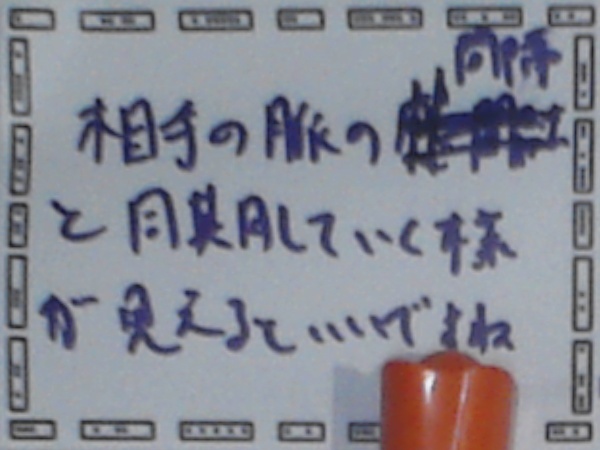 同時
相手の脈の
と同期していく様
が見えるといいですよね